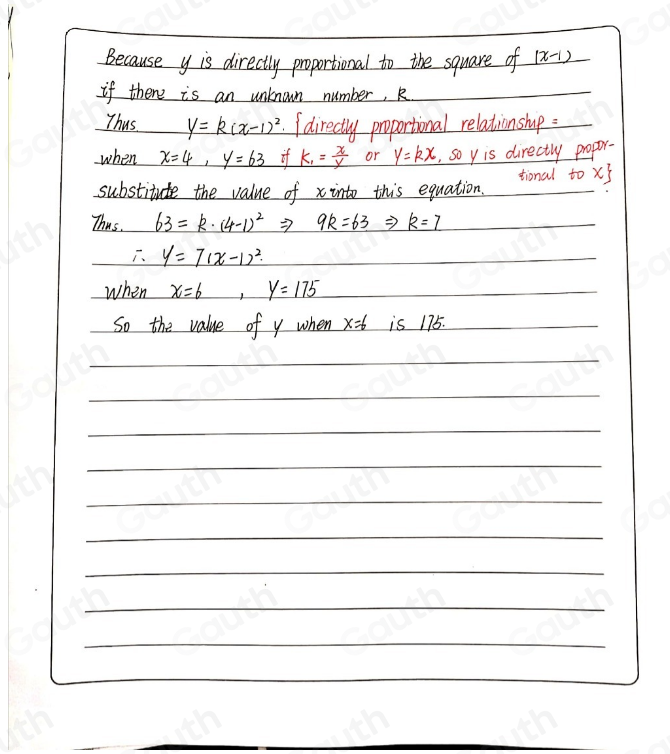 Because y is directly proportional to the square of (x-1)
if there is an unknown number, k
Thus y=k(x-1)². {directly proportional relationship =
when x=4, y=63 if k₁ = x/y or y=kx, so y is directly propor-
tional to x}
substitute the value of x into this equation.
Thus. 63=k·(4-1)² ⇒ 9k=63 ⇒ k=7
∴ y=7(x-1)².
When x=6, y=175
So the value of y when x=6 is 175.